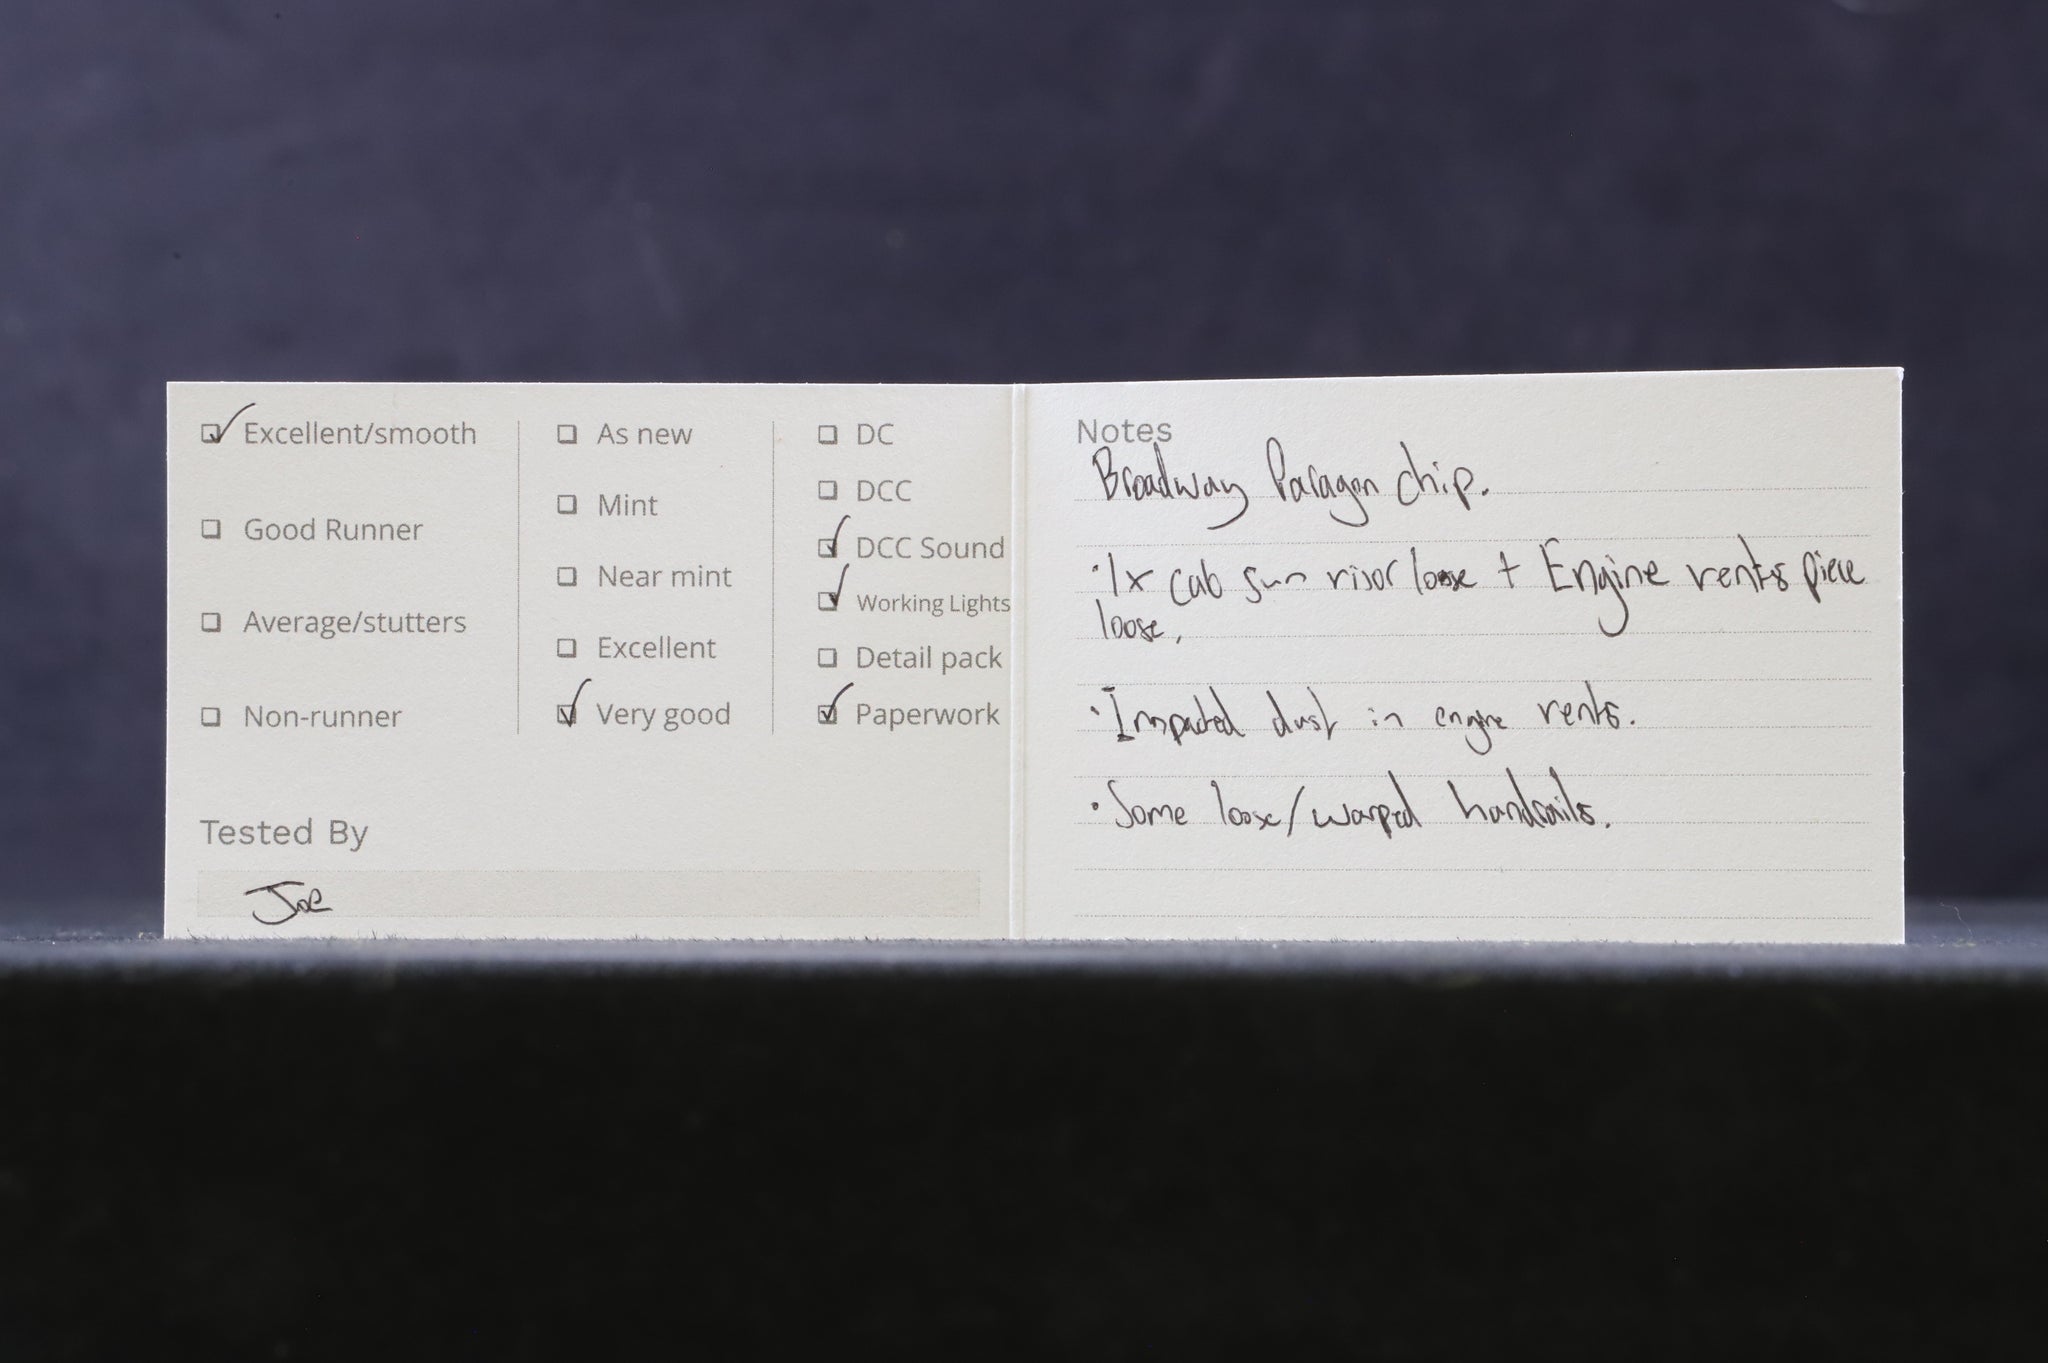 Excellent/smooth
Good Runner
Average/stutters
Non-runner
As new
Mint
Near mint
Excellent
Very good
DC
DCC
DCC Sound
Working Lights
Detail pack
Paperwork
Tested By
Joe
Notes
Broadway Paragon chip.
·1x cab sun visor loose + Engine vents piece
loose.
·Impacted dust in engine vents.
·Some loose/warped handrails.